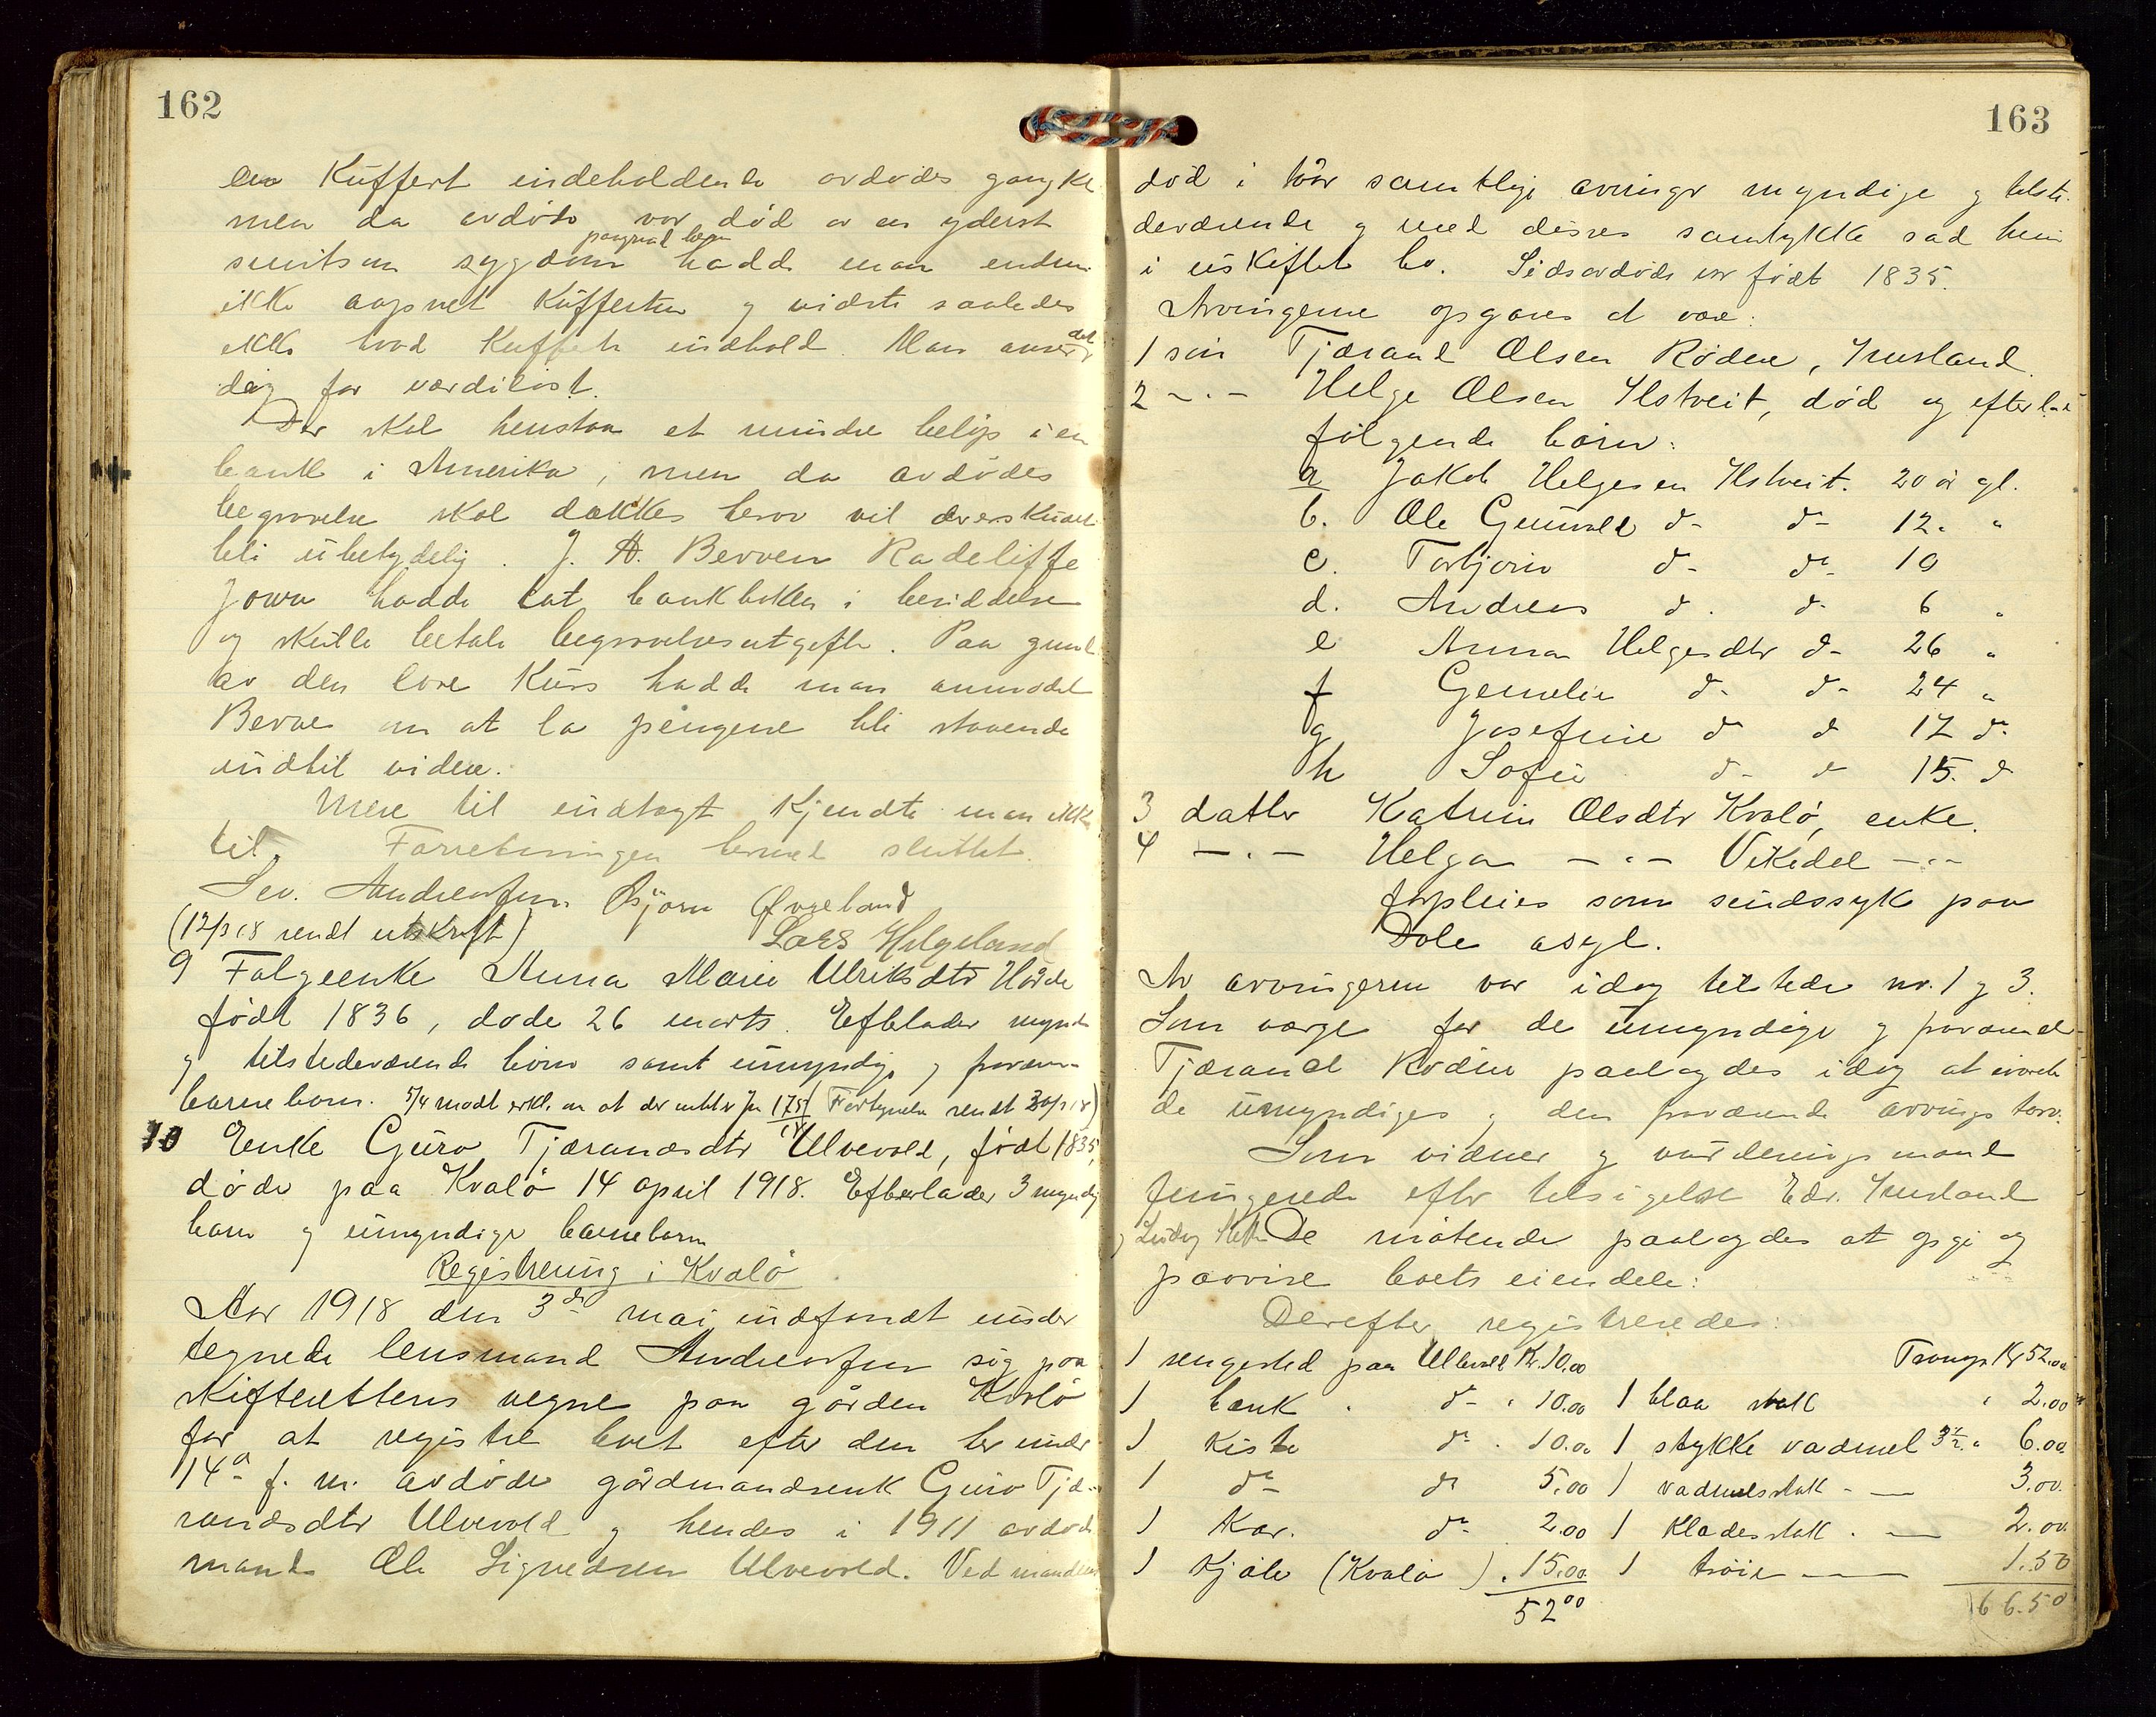 162
en Kuffert indeholdende avdødes gangkl.
men da avdøde var død av en yderst
paagrund herav
smitsom sygdom hadde man endnu
ikke aapnet Kufferten og vidste saaledes
ikke hvad Kufferts indhold. Man anser det
dog for værdiløst.
Der skal henstaa et mindre beløp i en
bank i Amerika, men da avdødes
begravelse skal dækkes herav vil overskudet
bli ubetydelig. J. A. Berven Radcliffe
Jowa hadde tat bankboken i besiddelse
og skulle betale begravelsesutgifter. Paa grund
av den lave Kurs hadde man anmodet
Berve om at la pengene bli staaende
indtil videre.
Mere til indtægt Kjendte man ikke
til. Forretningen hermed sluttet.
Sev. Andreassen Bjørn Øvreland
(12/3 18 sendt utskrift) Lars Helgeland
9 Følgeenke Anna Marie Ulriksdtr Hårde
født 1836, døde 26 marts. Efterlader mynd
og tilstedeværende børn samt umyndige og fraværen-
barnebarn. 5/4 modt erkl. om at der (Fortegnelse sendt 30/3 18)
10 Enke Guro Tjærandsdtr Ulvevold, født 1835,
døde paa Kvalø 14 april 1918. Efterlader 3 myndig
barn og umyndige barnebarn
Registrering i Kvalø
Aar 1918 den 3de mai indfandt under
tegnede lensmand Andreassen sig paa
skifterettens vegne paa gården Kvalø
for at registre boet efter den her under
14de f. m. avdøde gårdmandsenk Guro Tjæ-
randsdtr Ulvevold og hendes i 1911 avdøde
mand Ole Sigvedsen Ulvevold. Ved mandens
163
død i  var samtlige arvinger myndige og tilste-
deværende og med disses samtykke sad hun
i uskiftet bo. Sidstavdøde var født 1835.
Arvingerne opgaves at være:
1 søn Tjærand Olsen Rødne, Imsland.
2 -"- Helge Olsen Ilstveit, død og efterlat
følgende børn:
a Jakob Helgesen Ilstveit. 20 år gl.
b. Ole Gunvald do do 12 "
c. Torbjørn do do 10
d. Andreas do do 6 "
e Anna Helgesdtr do 26 "
f Gemelie do do 24 "
g Josefine do do 17 do
h Sofie do do 15. do
3 datter Katrine Olsdtr Kvalø, enke.
4 -"- Helga -"- Vikedel -"-
forpleies som sindssyk paa
Dale asyl.
Av arvingerne var idag tilstede nr. 1 og 3.
Som værge for de umyndige og fraværende
Tjærand Rødne paalagdes idag at ivareta
de umyndiges og den fraværende arvings tarv.
Som vidner og vurderingsmænd
fungerede efter tilsigelse Edv. Imsland
og Ludvig De møtende paalagdes at opgi og
paavise boets eiendele:
Derefter registreredes:
1 sengested paa Ullevold Kr. 10.00 Transp. Kr 52.00
1 bænk do " 10.00 1 blaa stakk " 2.00
1 Kiste do " 10.00 1 stykke vadmel 3 1/2 " 6.00
1 do do 5.00 1 vadmelsstakk - — 3.00
1 Kar. do 2.00 1 Kladesstakk . — 2.00
1 Kjole (Kvalø) . 15.00 1 trøie — 1.50
52 00 66.50